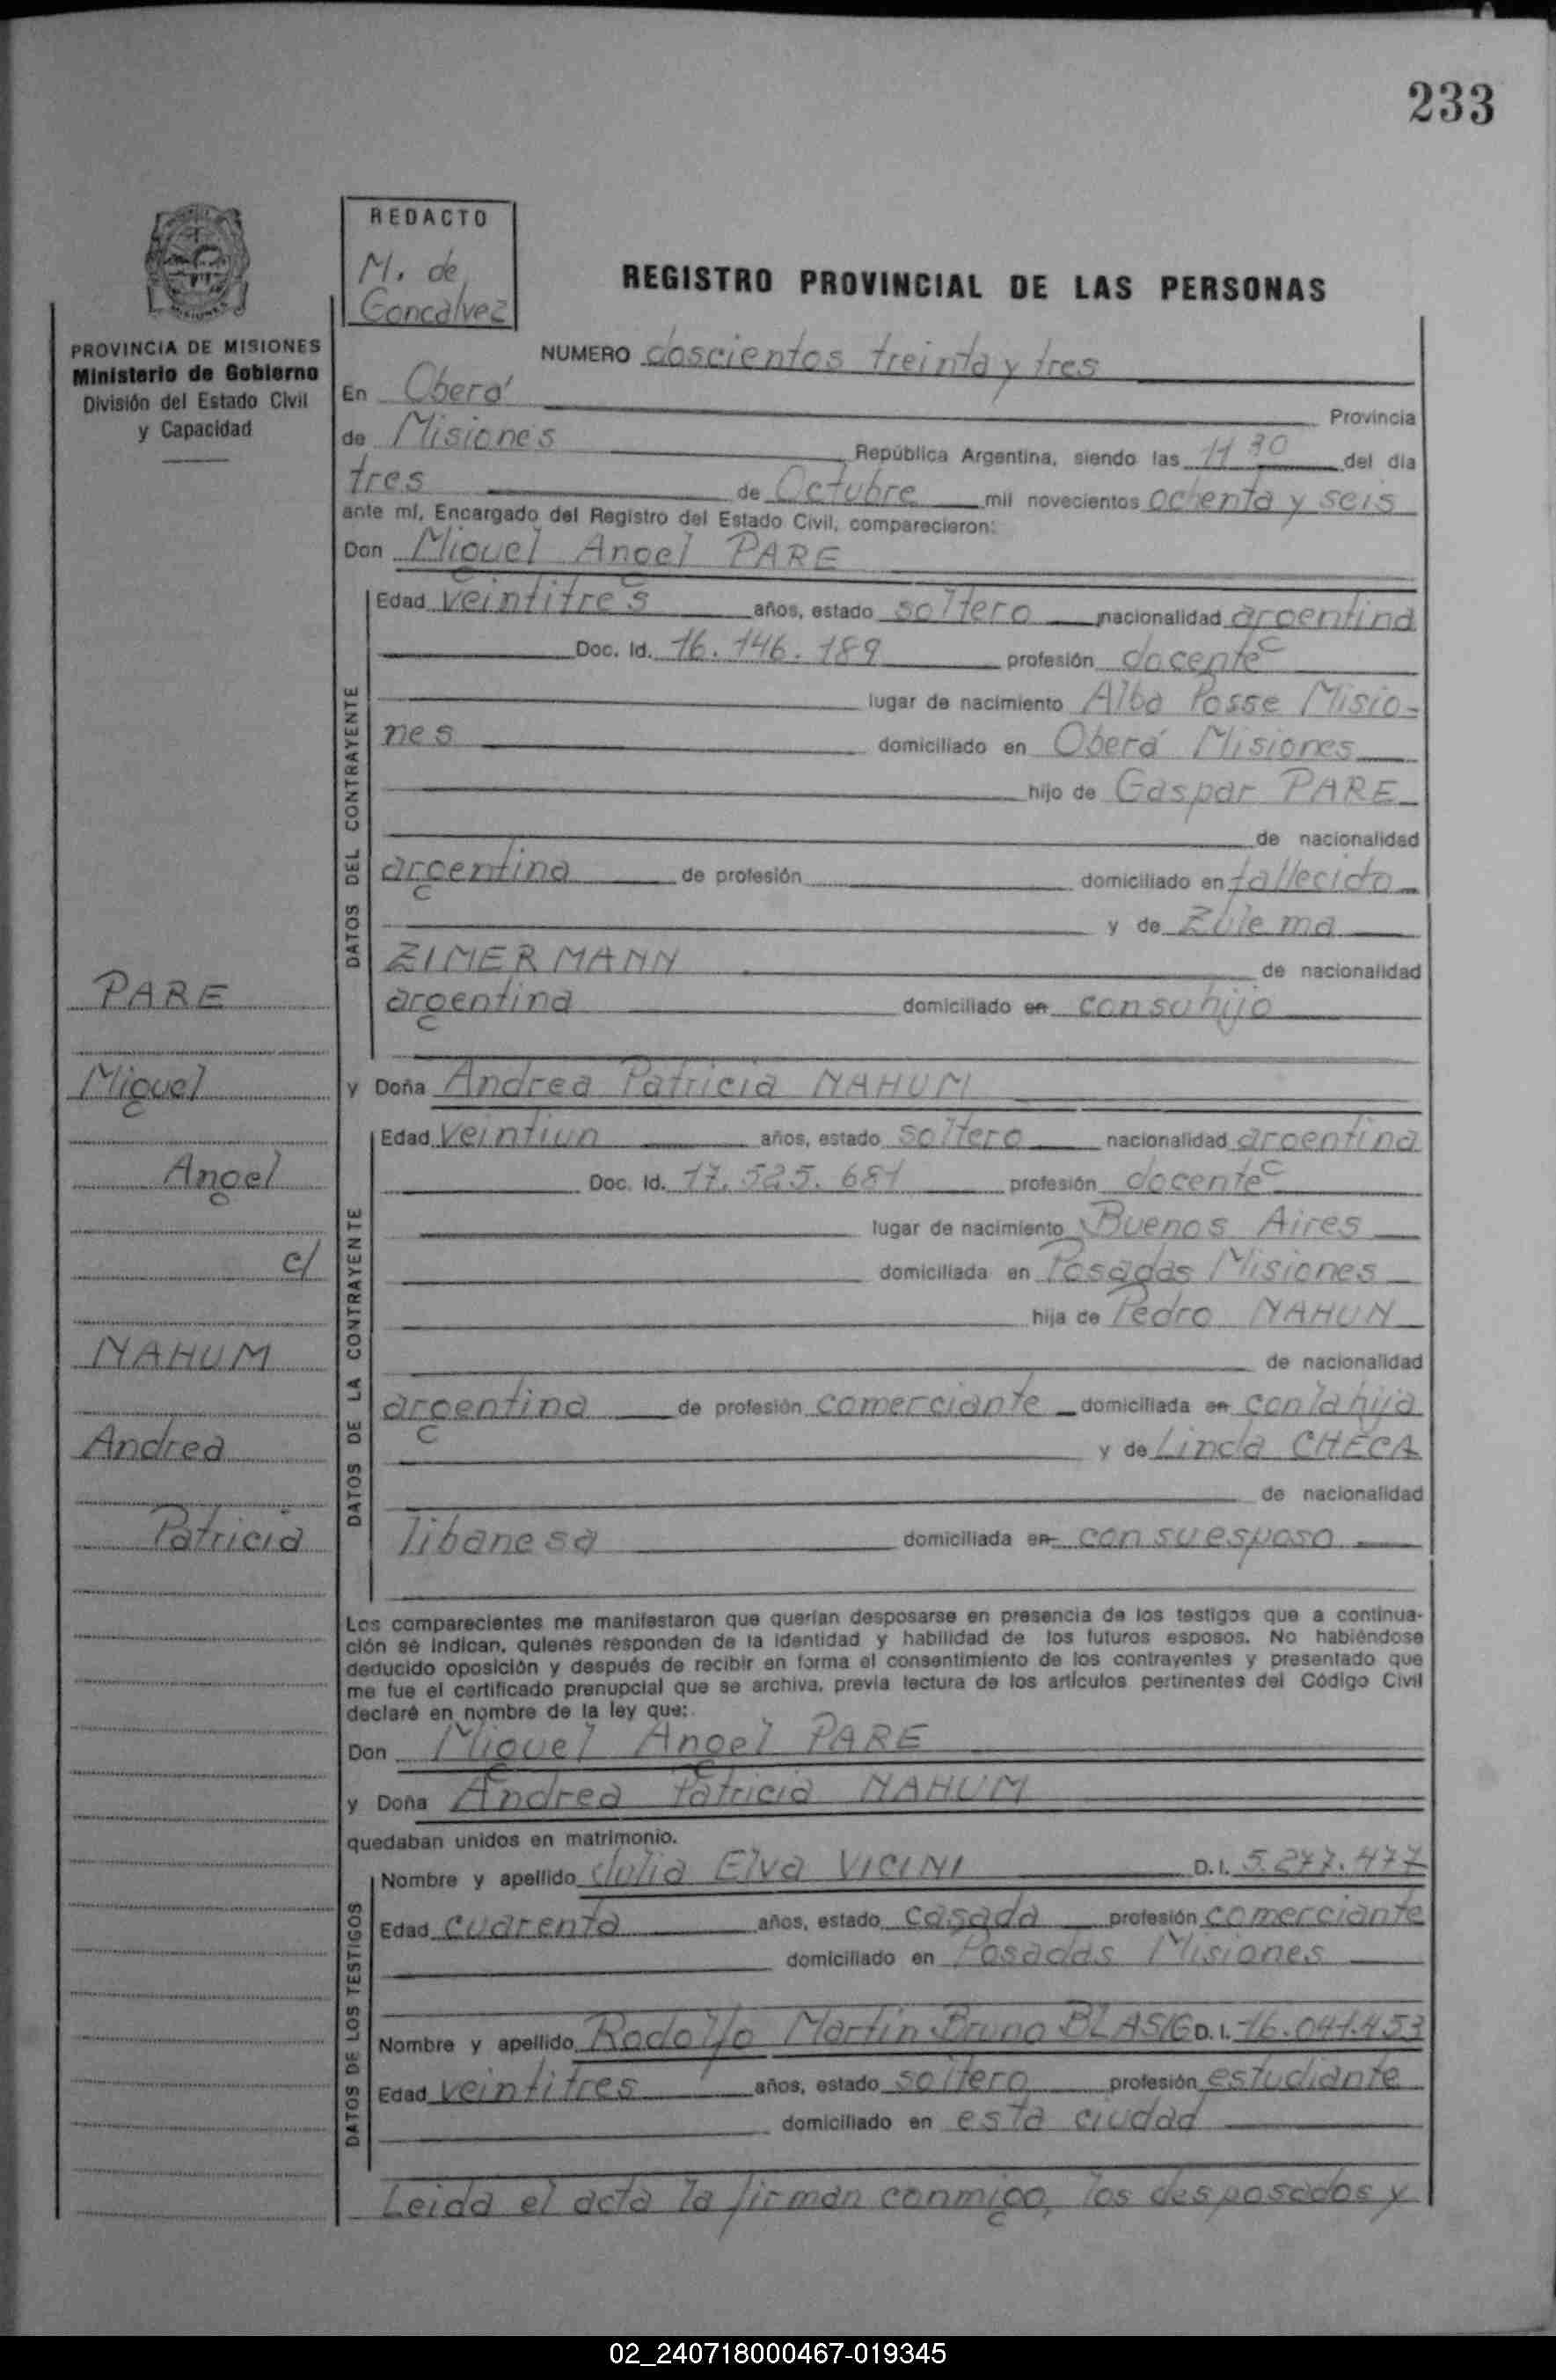 233
REDACTO
M. de
Goncalvez
REGISTRO PROVINCIAL DE LAS PERSONAS
PROVINCIA DE MISIONES
Ministerio de Gobierno
División del Estado Civil
y Capacidad
NUMERO doscientos treinta y tres
En Oberá Provincia
de Misiones República Argentina, siendo las 11 30 del día
tres de Octubre mil novecientos ochenta y seis
ante mí, Encargado del Registro del Estado Civil, comparecieron:
Don Miguel Angel PARE
DATOS DEL CONTRAYENTE
Edad veintitres años, estado soltero nacionalidad argentina
Doc. Id. 16.146.189 profesión docente
lugar de nacimiento Alba Posse Misio-
nes domiciliado en Oberá Misiones
hijo de Gaspar PARE
de nacionalidad
argentina de profesión domiciliado en fallecido
y de Zulema
ZIMERMANN de nacionalidad
argentina domiciliado en con su hijo
y Doña Andrea Patricia NAHUM
DATOS DE LA CONTRAYENTE
Edad veintiun años, estado soltero nacionalidad argentina
Doc. Id. 17.525.681 profesión docente
lugar de nacimiento Buenos Aires
domiciliada en Posadas Misiones
hija de Pedro NAHUN
de nacionalidad
argentina de profesión comerciante domiciliada en con la hija
y de Linda CHECA
de nacionalidad
libanesa domiciliada en con su esposo
PARE
Miguel
Angel
c/
NAHUM
Andrea
Patricia
Los comparecientes me manifestaron que querían desposarse en presencia de los testigos que a continua-
ción se indican, quienes responden de la identidad y habilidad de los futuros esposos. No habiéndose
deducido oposición y después de recibir en forma el consentimiento de los contrayentes y presentado que
me fue el certificado prenupcial que se archiva, previa lectura de los artículos pertinentes del Código Civil
declaré en nombre de la ley que:
Don Miguel Angel PARE
y Doña Andrea Patricia NAHUM
quedaban unidos en matrimonio.
DATOS DE LOS TESTIGOS
Nombre y apellido Julia Elva VICINI D. I. 5.277.477
Edad cuarenta años, estado casada profesión comerciante
domiciliado en Posadas Misiones
Nombre y apellido Rodolfo Martin Bruno BLASIG D. I. 16.041.453
Edad veintitres años, estado soltero profesión estudiante
domiciliado en esta ciudad
Leida el acta la firman conmigo, los desposados y
02_240718000467-019345